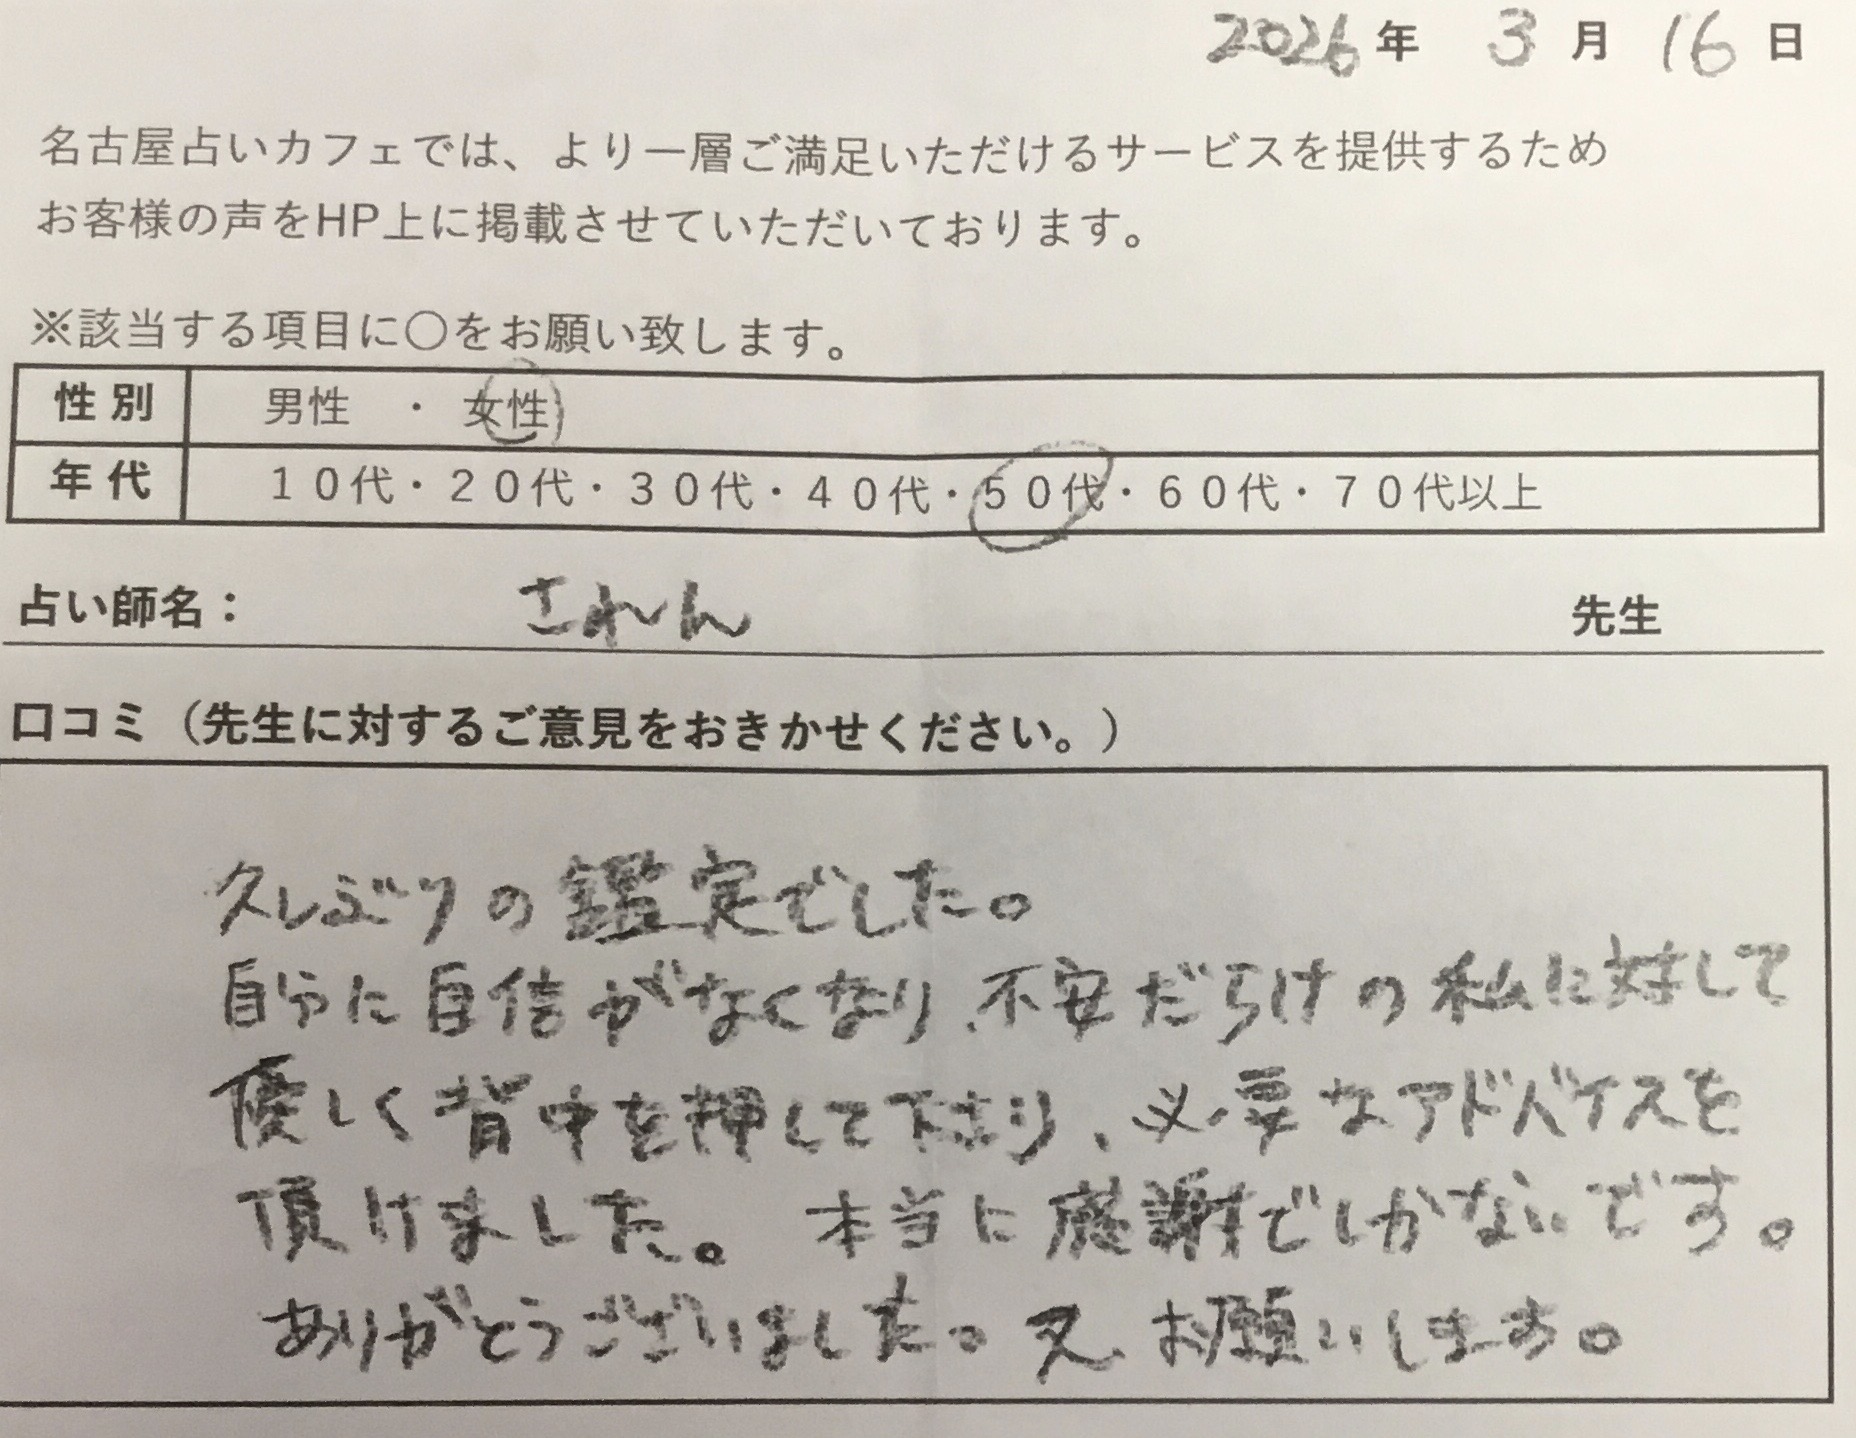 2026年 3月 16日
名古屋占いカフェでは、より一層ご満足いただけるサービスを提供するため
お客様の声をHP上に掲載させていただいております。
※該当する項目に〇をお願い致します。
性別 男性 ・ 女性
年代 10代・20代・30代・40代・50代・60代・70代以上
占い師名： されん 先生
口コミ（先生に対するご意見をおきかせください。）
久しぶりの鑑定でした。
自分に自信がなくなり、不安だらけの私に対して
優しく背中を押して下さり、必要なアドバイスを
頂けました。本当に感謝でしかないです。
ありがとうございました。又、お願いします。